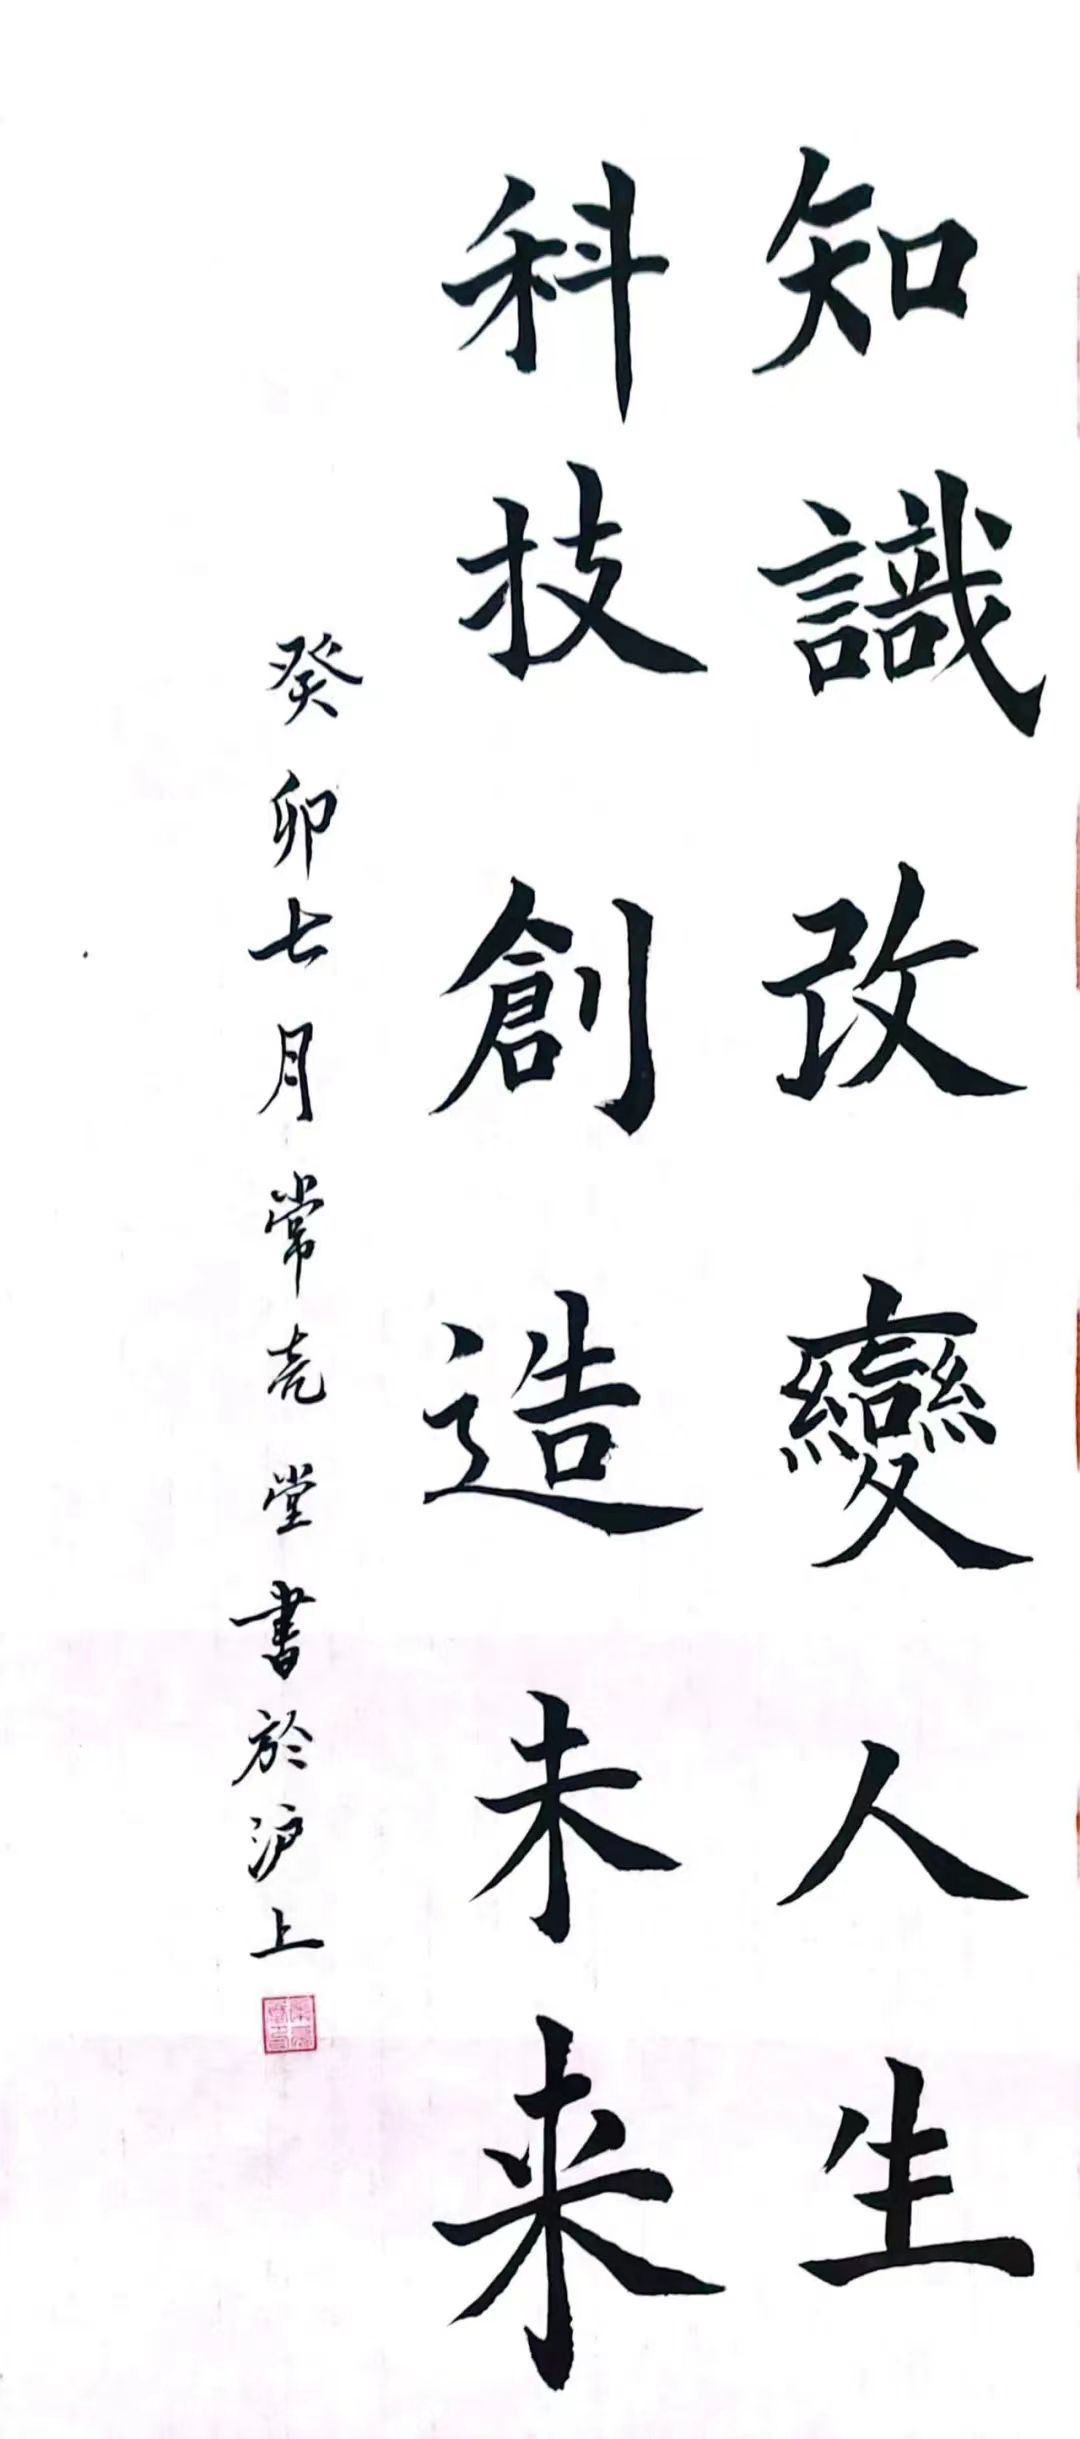 知識改變人生
科技創造未来
癸卯七月常亮堂書於沪上